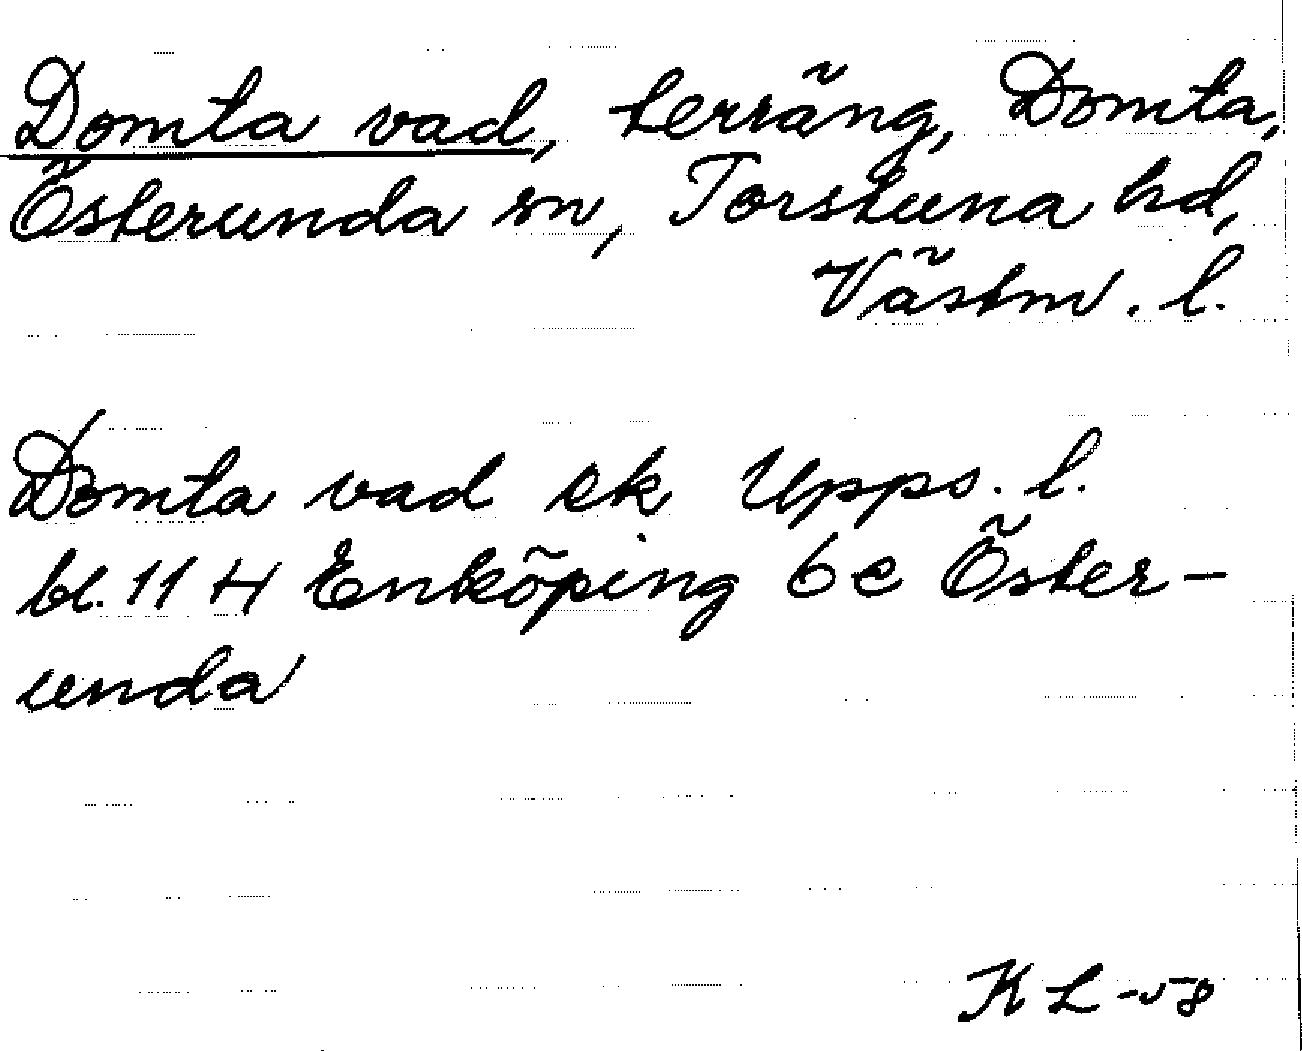 Domta vad, terräng, Domta,
Österunda sn, Torstuna hd,
Västm. l.
Domta vad ek Upps. l.
bl. 11 H Enköping 6e Öster-
unda
KL -58